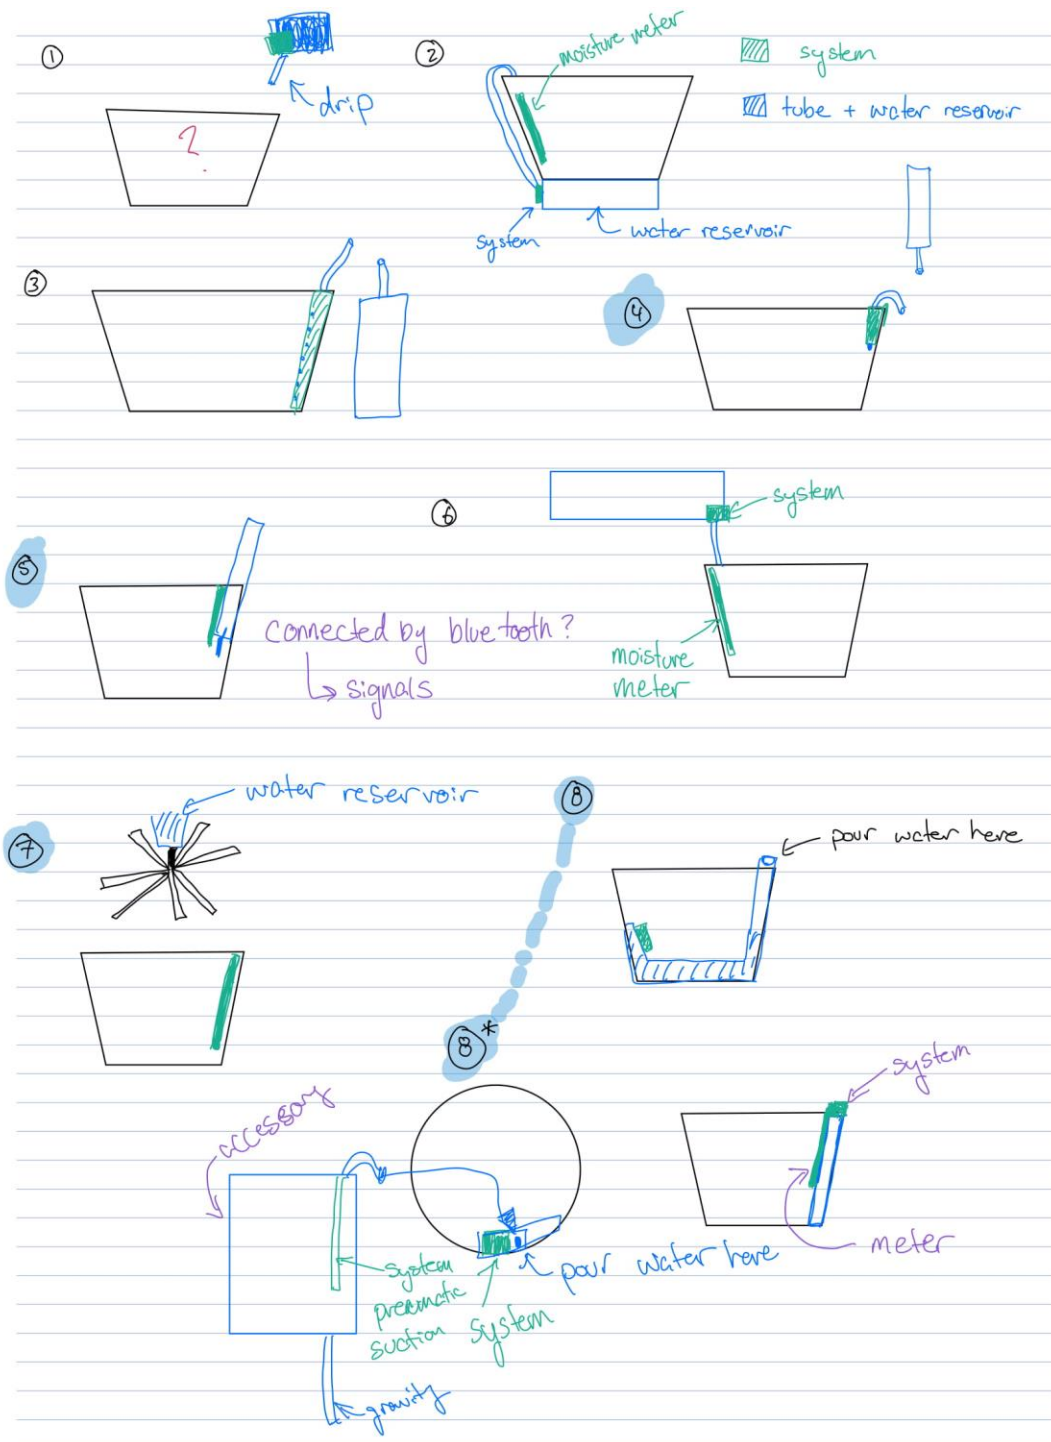 ①
drip
?
②
moisture meter
system
tube + water reservoir
system
water reservoir
③
④
⑤
connected by bluetooth?
signals
⑥
system
moisture
meter
⑦
water reservoir
⑧
pour water here
⑧*
accessory
system
pneumatic
suction
system
pour water here
gravity
system
meter